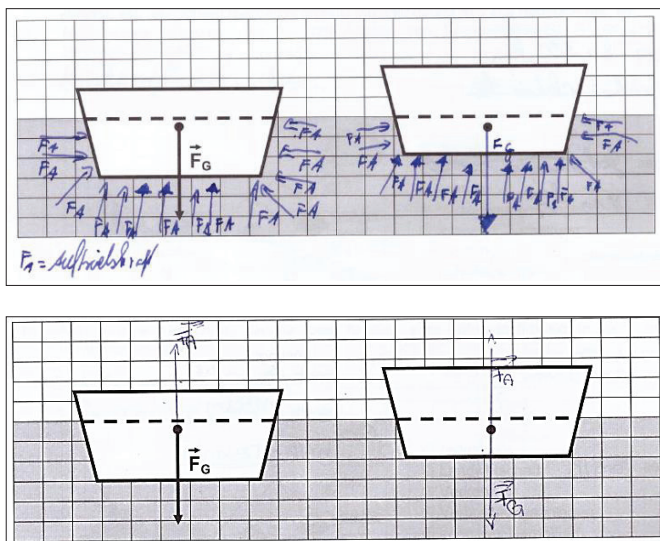 F_A
F_A
F_A
F_A
F_A
F_A
F_A
F_A
F_A
F_A
F_A
F_A
F_A
F⃗_G
F_A = Auftriebskraft
F_A
F_A
F_A
F_A
F_A
F_A
F_A
F_A
F_A
F_A
F_A
F_A
F_A
F_G
F⃗_A
F⃗_G
F⃗_A
F⃗_G